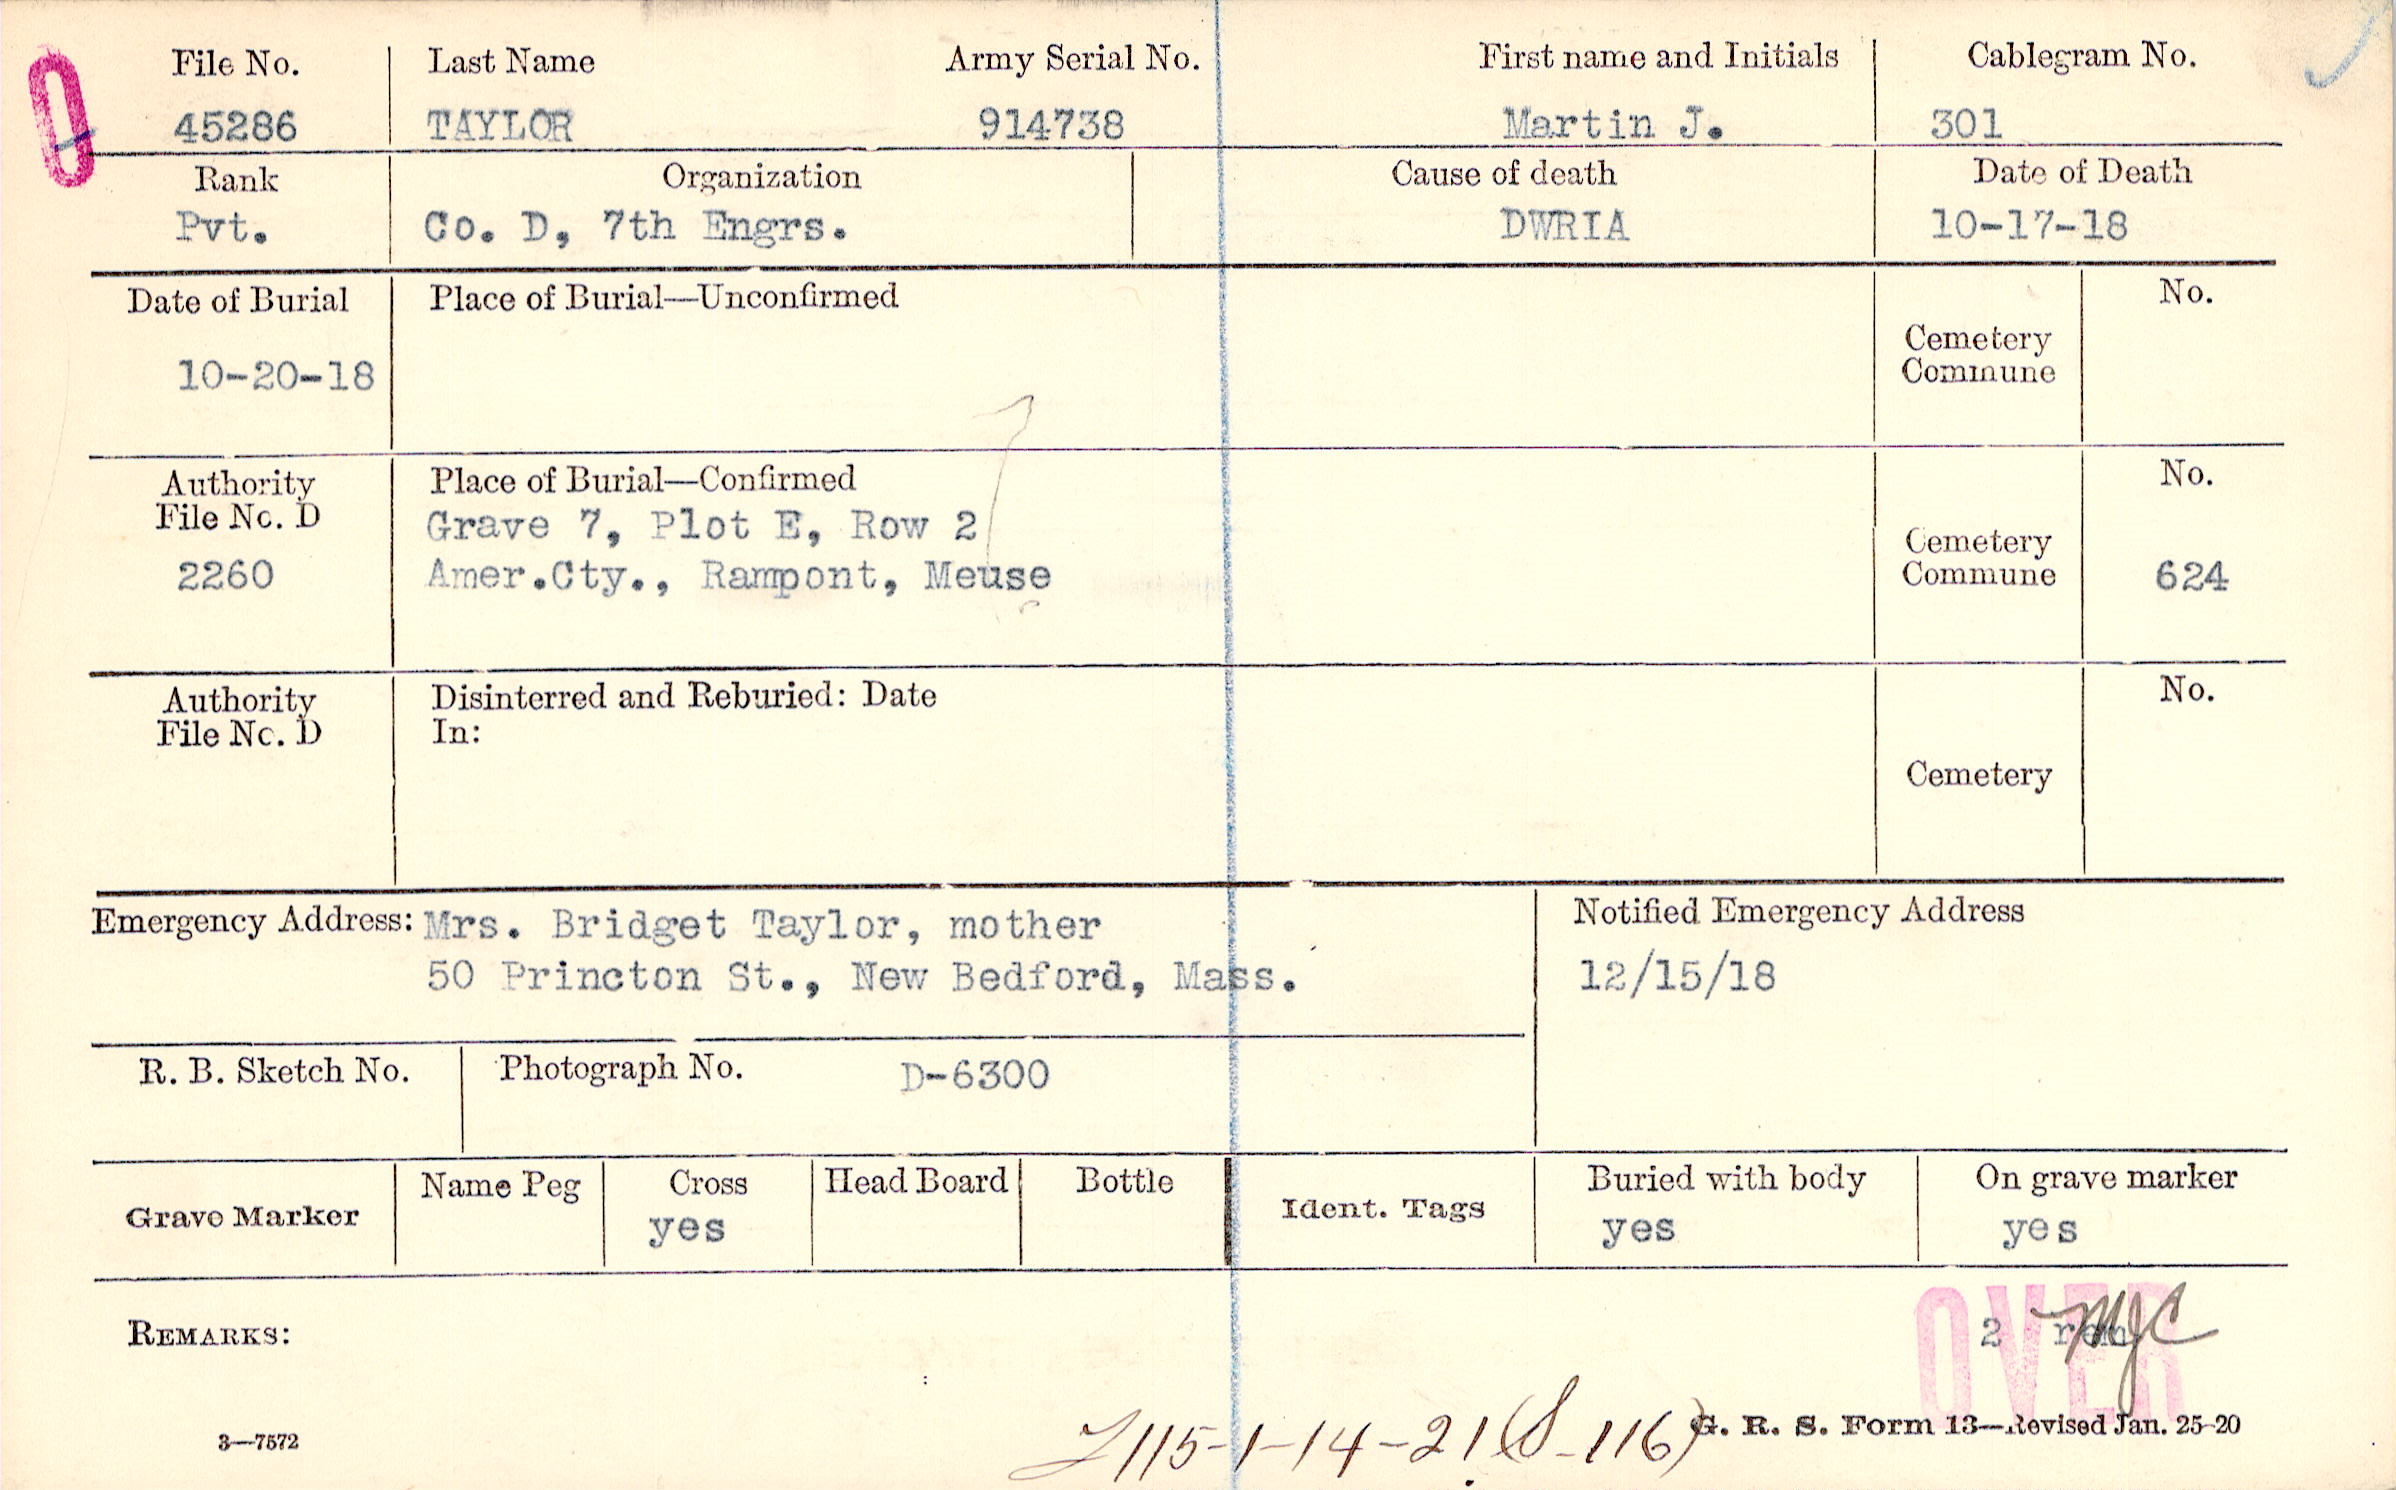 File No. Last Name Army Serial No. First name and Initials Cablegram No.
45286 TAYLOR 914738 Martin J. 301
Rank Organization Cause of death Date of Death
Pvt. Co. D, 7th Engrs. DWRIA 10-17-18
Date of Burial Place of Burial—Unconfirmed No.
10-20-18
Cemetery
Commune
Authority Place of Burial—Confirmed No.
File No. D Grave 7, Plot E, Row 2 Cemetery
2260 Amer.Cty., Rampont, Meuse Commune 624
Authority Disinterred and Reburied: Date No.
File No. D In:
Cemetery
Emergency Address: Mrs. Bridget Taylor, mother Notified Emergency Address
50 Princton St., New Bedford, Mass. 12/15/18
R. B. Sketch No. Photograph No. D-6300
Grave Marker Name Peg Cross Head Board Bottle Ident. Tags Buried with body On grave marker
yes yes yes
REMARKS: 2 rem MJC
OVER
3—7572 115-1-14-21 (S-116) G. R. S. Form 13—Revised Jan. 25-20